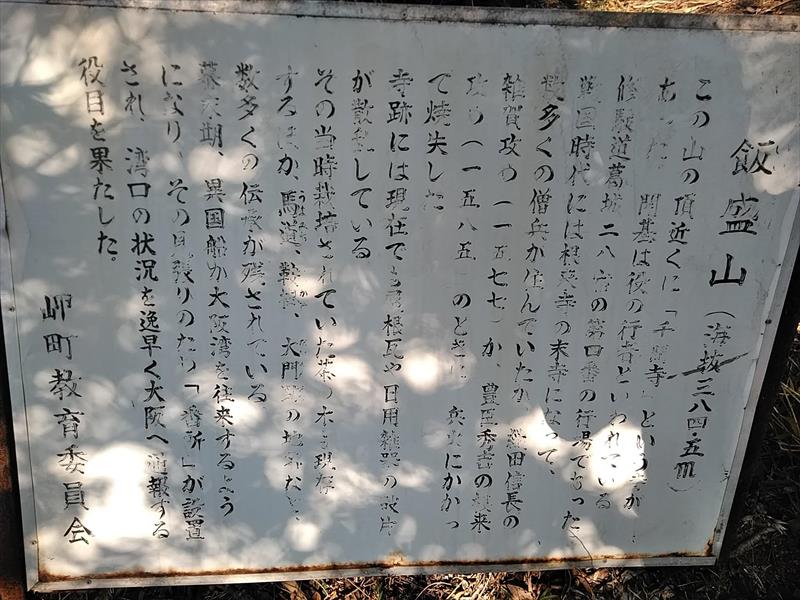 飯盛山(海抜三八四・五m)
この山の頂近くに「千 寺」という が
あった 開基は役の行者といわれている
修験道葛城二八宿の第四番の行場であった
戦国時代には根来寺の末寺になって、
数多くの僧兵が住んでいたが 織田信長の
雑賀攻め(一五七七)か、豊臣秀吉の 来
攻め(一五八五)のとき 兵火にかかっ
て焼失した
寺跡には現在でも屋根瓦や日用雑器の破片
が散乱している
その当時栽培されていた茶の木も現存
するほか、馬道、鞍掛、大門 の地名など
数多くの伝承が残されている
幕末期、異国船が大阪湾を往来するよう
になり、その見張りのため「番所」が設置
され、湾口の状況を逸早く大阪へ通報する
役目を果たした。
岬町教育委員会